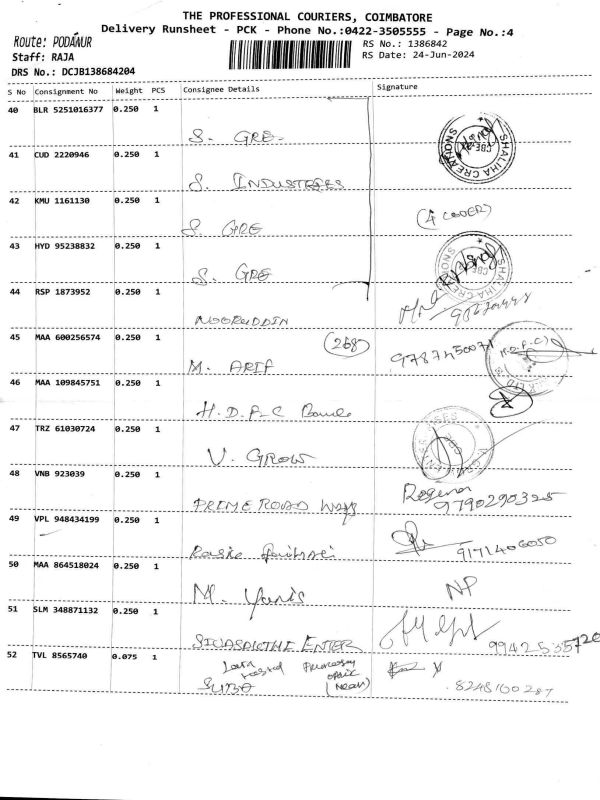 THE PROFESSIONAL COURIERS, COIMBATORE
Delivery Runsheet - PCK - Phone No.:0422-3505555 - Page No.:4
Route: PODANUR
RS No.: 1386842
Staff: RAJA
RS Date: 24-Jun-2024
DRS No.: DCJB138684204
S No Consignment No Weight PCS Consignee Details Signature
40 BLR 5251016377 0.250 1
S. GRE.
41 CUD 2220946 0.250 1
S. INDUSTRIES
42 KMU 1161130 0.250 1
S. GRE (4 COVER)
43 HYD 95238832 0.250 1
S. GRE
44 RSP 1873952 0.250 1
NOORUDDIN
45 MAA 600256574 0.250 1 (268)
M. ARIF
46 MAA 109845751 0.250 1
H.D.F.C Bank
47 TRZ 61030724 0.250 1
V. GROW
48 VNB 923039 0.250 1
PRIME ROAD WAYS 9790290325
49 VPL 948434199 0.250 1
9171406050
50 MAA 864518024 0.250 1
M. Yunis NP
51 SLM 348871132 0.250 1
SIVASAKTHI ENTER 9942535720
52 TVL 8565740 0.075 1
SUBA (Near) 8248160287